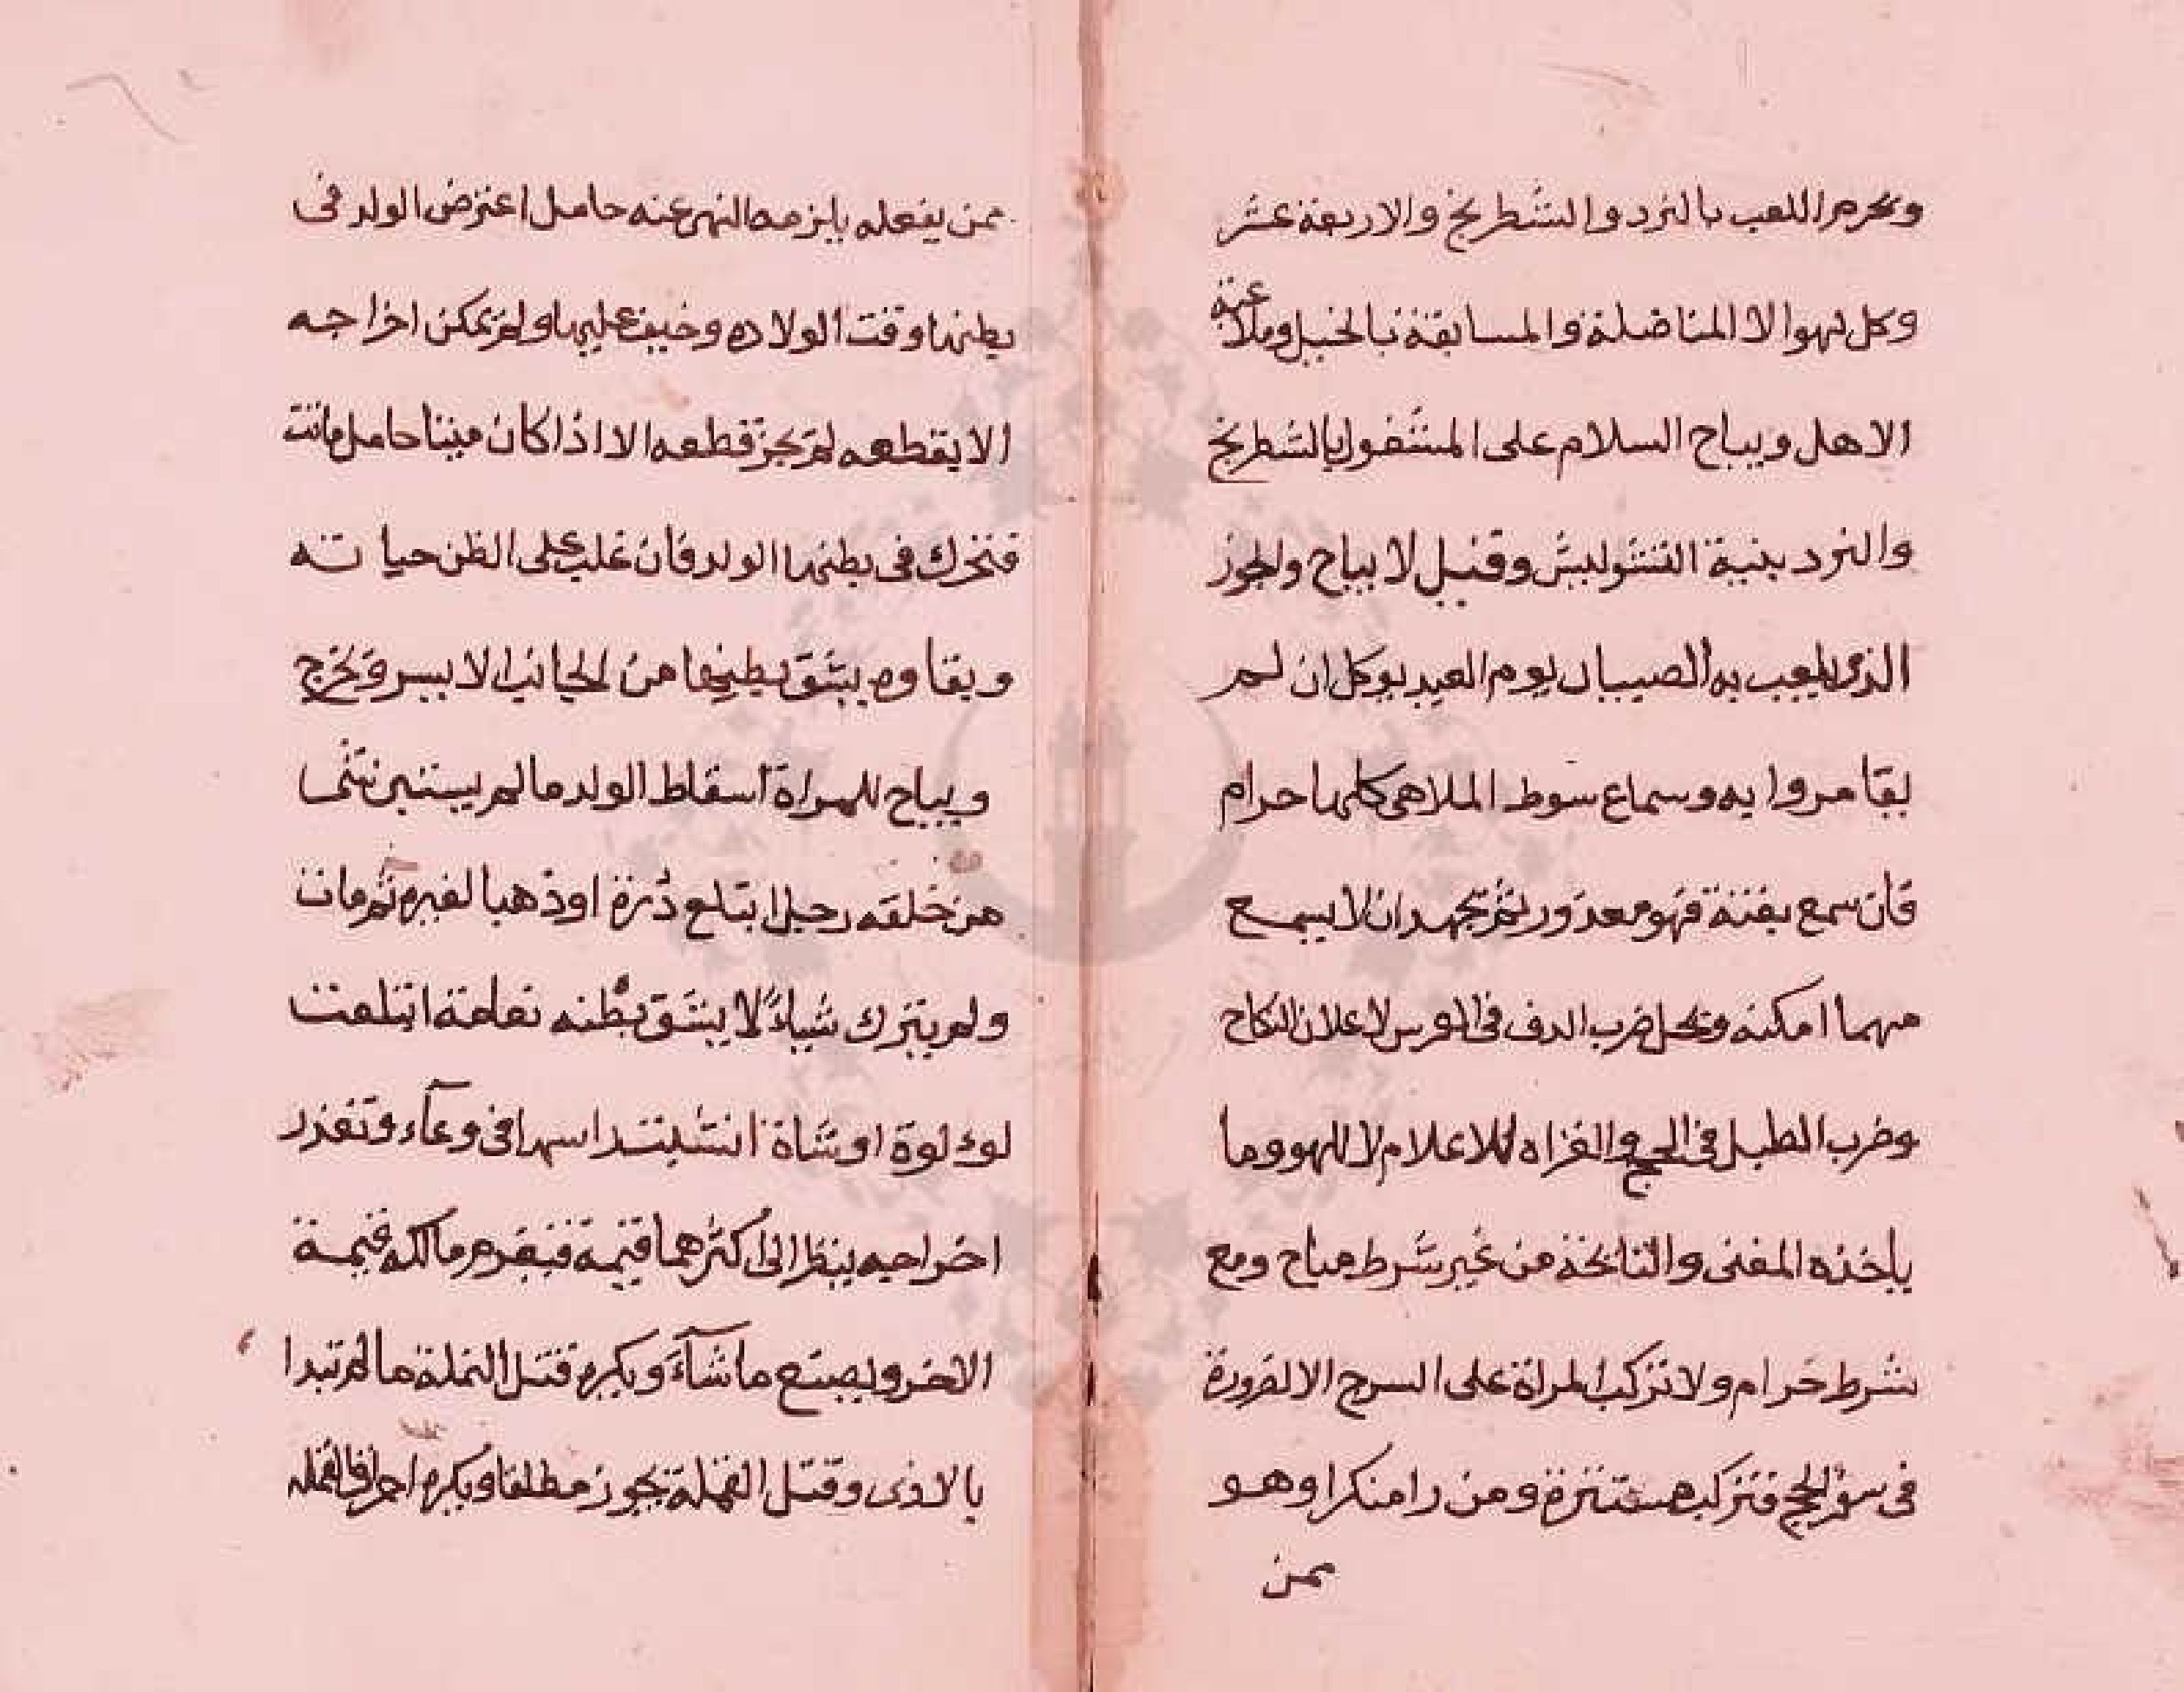 ويحرم اللعب بالنرد والشطرنج والاربعة عشر
وكل لهو الا المناضلة والمسابقة بالخيل وملاعبة
الاهل ويباح السلام على المشغول بالشطرنج
والنرد بنية التشويش وقيل لا يباح والجوز
الذي يلعب به الصيبان يوم العيد يوكل ان لم
يقامروا به وسماع سوط الملاهى كلها حرام
فان سمع بغتة فهو معذور ثم يجهد ان لا يسمع
مهما امكنه ويحل ضرب الدف فى العرس لاعلان النكاح
وضرب الطبل فى الحج والغزاه للاعلام لا للهو وما
ياخذه المغنى والنايحة من غير شرط مباح ومع
شرط حرام ولا تركب المراة على السرج الا لضرورة
فى سفر الحج فتركب مستترة ومن را منكرا وهو
ممن
ممن يفعله يلزمه النهى عنه حامل اعترض الولد فى
بطنها وقت الولاده وخيف عليها ولم يمكن اخراجه
الا بقطعه لم يجز قطعه الا اذا كان ميتا حامل ماتت
فتحرك فى بطنها الولد فان غلب على الظن حياته
وبقاوه يشق بطنها من الجانب الايسر ويخرج
ويباح للمراة اسقاط الولد ما لم يستبن شى
من خلقه رجل ابتلع درة او ذهبا لغيره ثم مات
ولم يترك شياءً لا يشق بطنه نعامة ابتلعت
لوءلوة او شاة انشبت راسها فى وعآء وتعذر
اخراجه ينظر الى اكثرهما قيمة فيغرم مالكه قيمة
الاخر ويصنع ما شآء ويكره قتل النملة ما لم تبدا
بالاذى وقتل القملة يجوز مطلقا ويكره احراق القمله